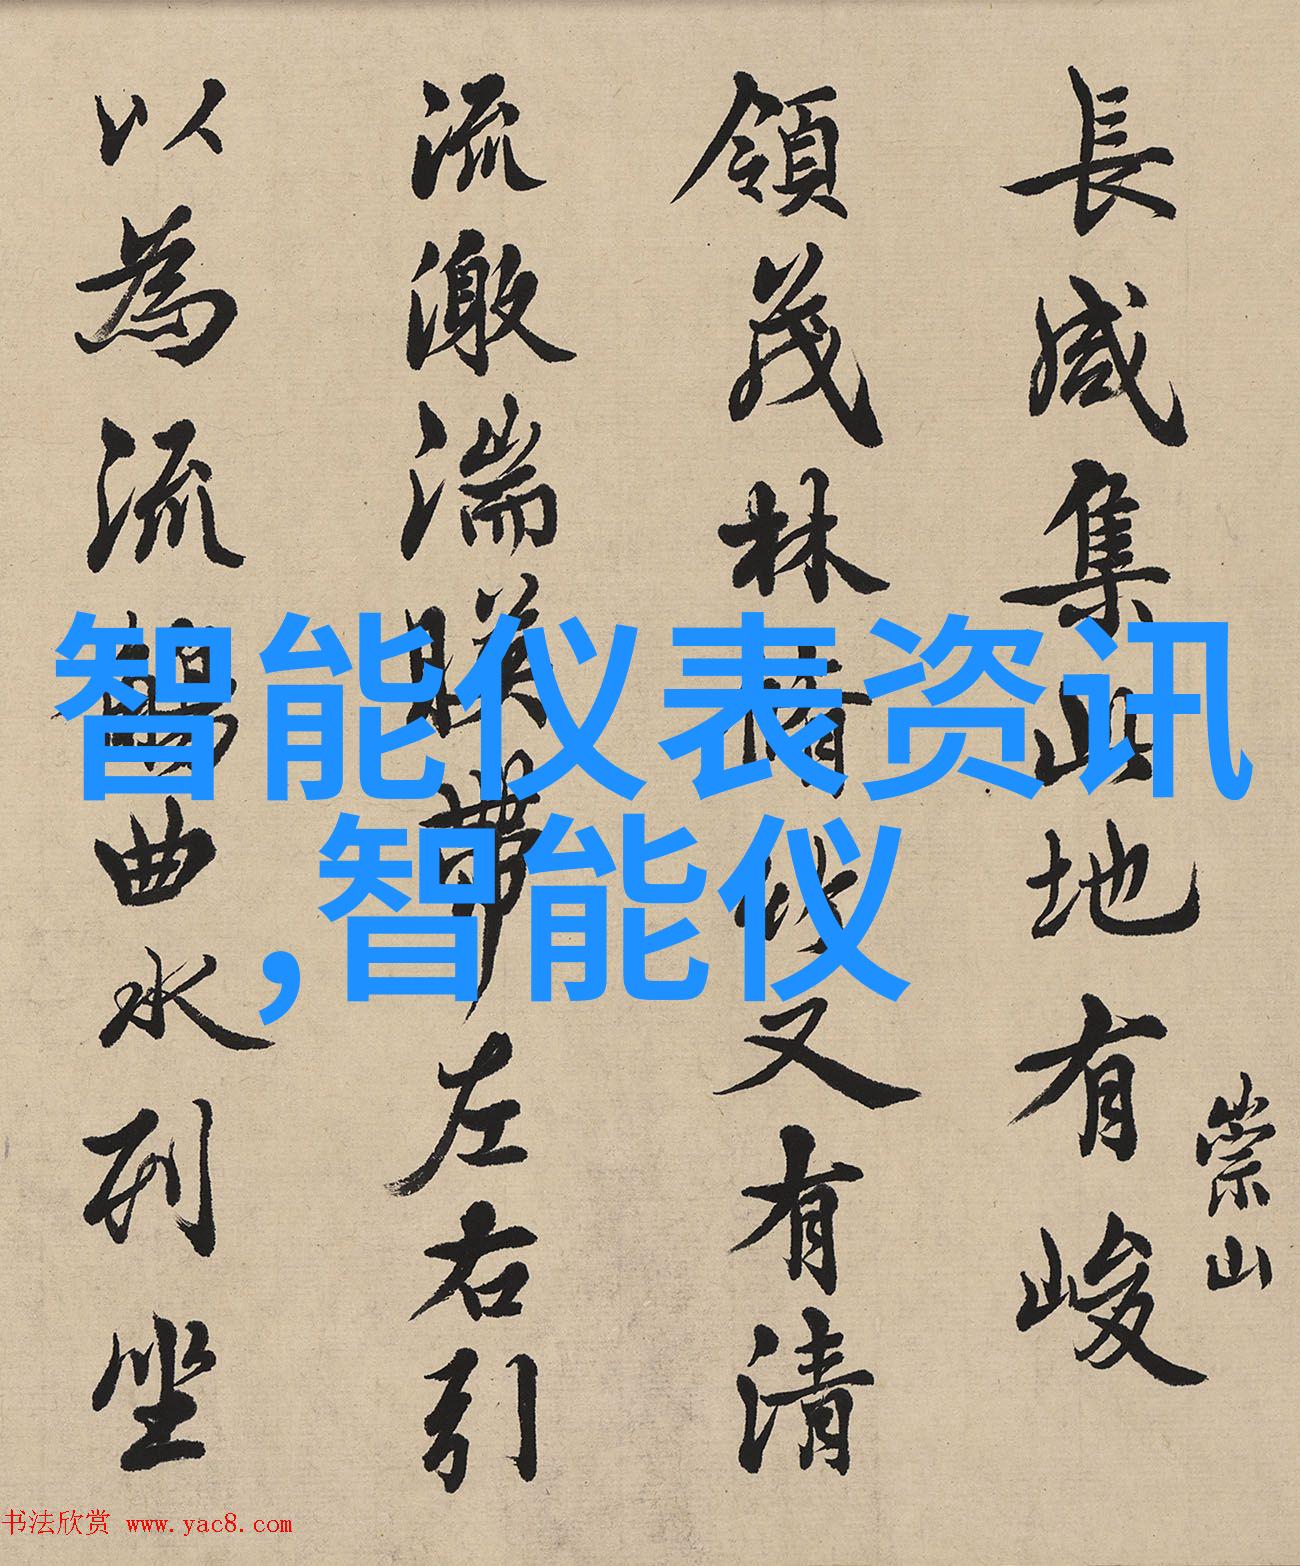 長咸集此地有峻
崇山
領茂林脩竹又有清
流激湍暎帶左右引
以為流觴曲水列坐
智能仪表资讯
,智能仪
书法欣赏 www.yac8.com